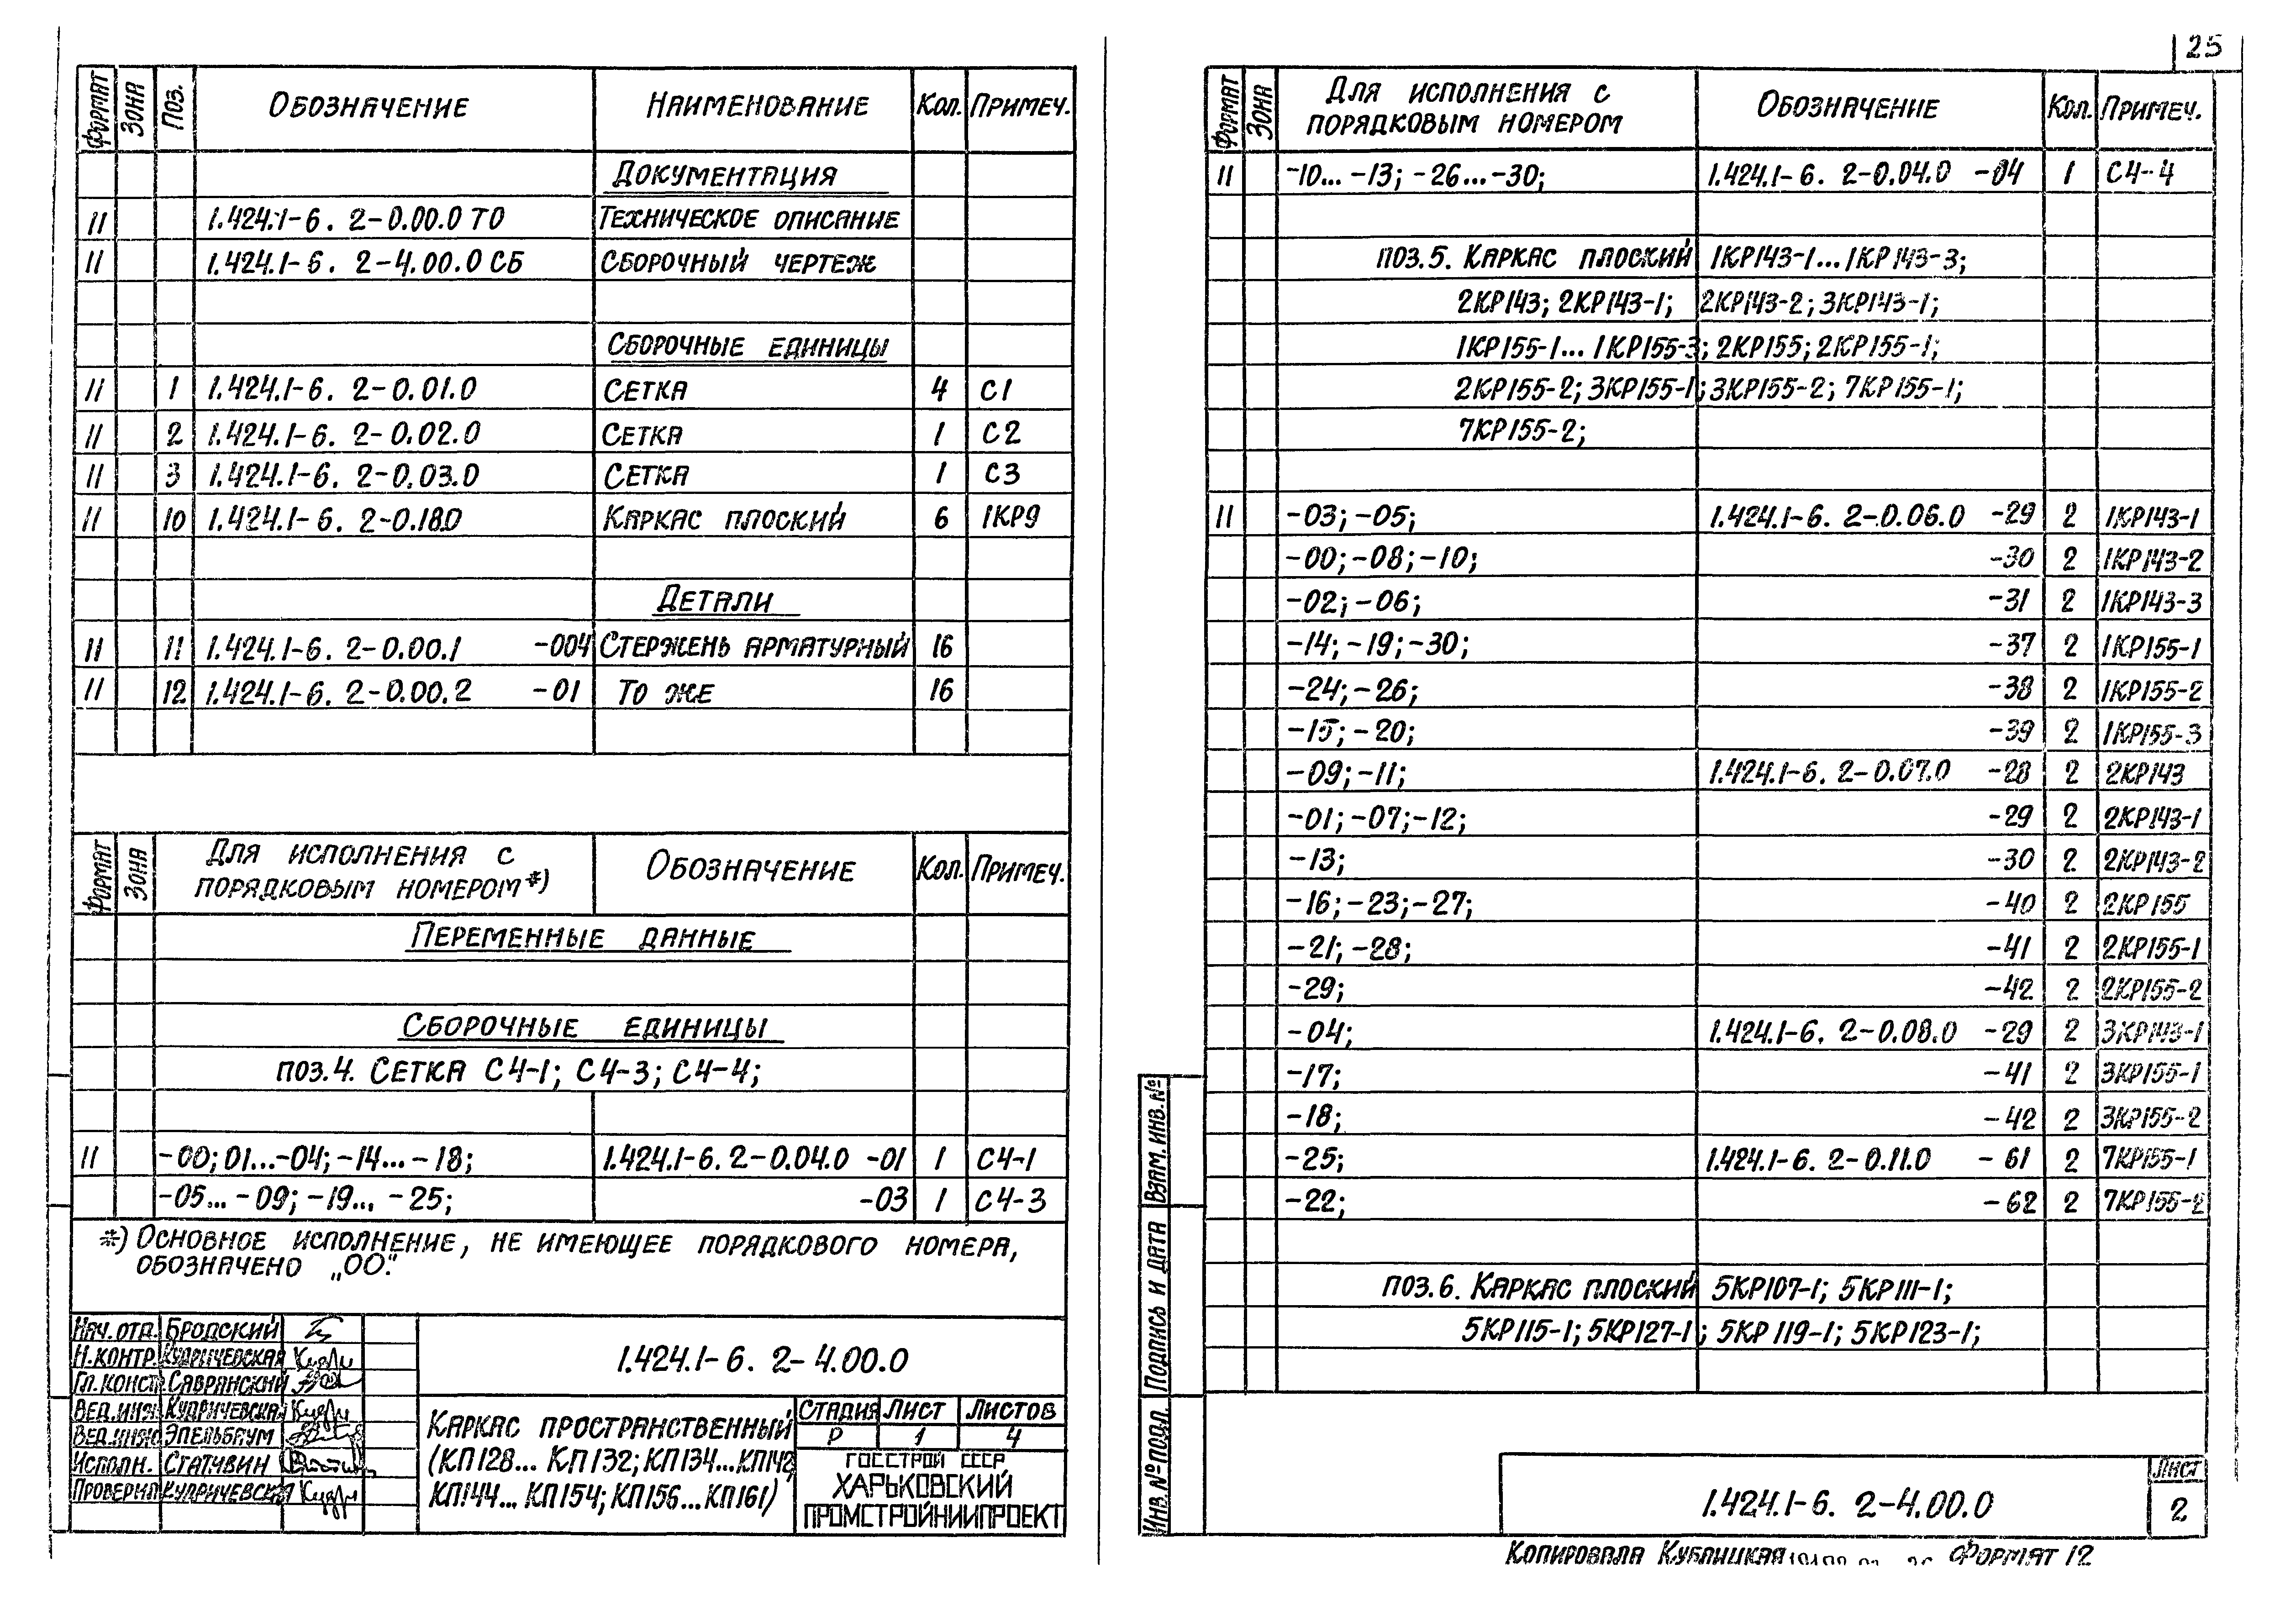 25
Формат Зона Поз. Обозначение Наименование Кол. Примеч.
Документация
11 1.424.1-6. 2-0.00.0 ТО Техническое описание
11 1.424.1-6. 2-4.00.0 СБ Сборочный чертеж
Сборочные единицы
11 1 1.424.1-6. 2-0.01.0 Сетка 4 С1
11 2 1.424.1-6. 2-0.02.0 Сетка 1 С2
11 3 1.424.1-6. 2-0.03.0 Сетка 1 С3
11 10 1.424.1-6. 2-0.18.0 Каркас плоский 6 1КР9
Детали
11 11 1.424.1-6. 2-0.00.1 -004 Стержень арматурный 16
11 12 1.424.1-6. 2-0.00.2 -01 То же 16
Формат Зона Для исполнения с порядковым номером*) Обозначение Кол. Примеч.
Переменные данные
Сборочные единицы
поз.4. Сетка С4-1; С4-3; С4-4;
11 -00; 01...-04; -14... -18; 1.424.1-6. 2-0.04.0 -01 1 С4-1
-05... -09; -19... -25; -03 1 С4-3
*) Основное исполнение, не имеющее порядкового номера,
обозначено „00".
Нач. отд. Бродский
Н. контр. Кудричевская
Гл. конст. Саврянский
Вед. инж. Кудричевская
Вед. инж. Эпельбаум
Исполн. Статувин
Проверил Кудричевская
1.424.1-6. 2-4.00.0
Каркас пространственный
(КП128... КП132; КП134...КП142
КП144... КП154; КП156...КП161)
Стадия Лист Листов
Р 1 4
Госстрой СССР
ХАРЬКОВСКИЙ
ПРОМСТРОЙНИИПРОЕКТ
Формат Зона Для исполнения с порядковым номером Обозначение Кол. Примеч.
11 -10... -13; -26...-30; 1.424.1-6. 2-0.04.0 -04 1 С4-4
поз.5. Каркас плоский 1КР143-1...1КР143-3;
2КР143; 2КР143-1; 2КР143-2; 3КР143-1;
1КР155-1... 1КР155-3; 2КР155; 2КР155-1;
2КР155-2; 3КР155-1; 3КР155-2; 7КР155-1;
7КР155-2;
11 -03; -05; 1.424.1-6. 2-0.06.0 -29 2 1КР143-1
-00; -08; -10; -30 2 1КР143-2
-02; -06; -31 2 1КР143-3
-14; -19; -30; -37 2 1КР155-1
-24; -26; -38 2 1КР155-2
-15; -20; -39 2 1КР155-3
-09; -11; 1.424.1-6. 2-0.07.0 -28 2 2КР143
-01; -07; -12; -29 2 2КР143-1
-13; -30 2 2КР143-2
-16; -23; -27; -40 2 2КР155
-21; -28; -41 2 2КР155-1
-29; -42 2 2КР155-2
-04; 1.424.1-6. 2-0.08.0 -29 2 3КР143-1
-17; -41 2 3КР155-1
-18; -42 2 3КР155-2
-25; 1.424.1-6. 2-0.11.0 -61 2 7КР155-1
-22; -62 2 7КР155-2
поз.6. Каркас плоский 5КР107-1; 5КР111-1;
5КР115-1; 5КР127-1; 5КР119-1; 5КР123-1;
Взам. инв. №
Подпись и дата
Инв. № подл.
1.424.1-6. 2-4.00.0
Лист
2
Копировала Кубицкая Формат 12